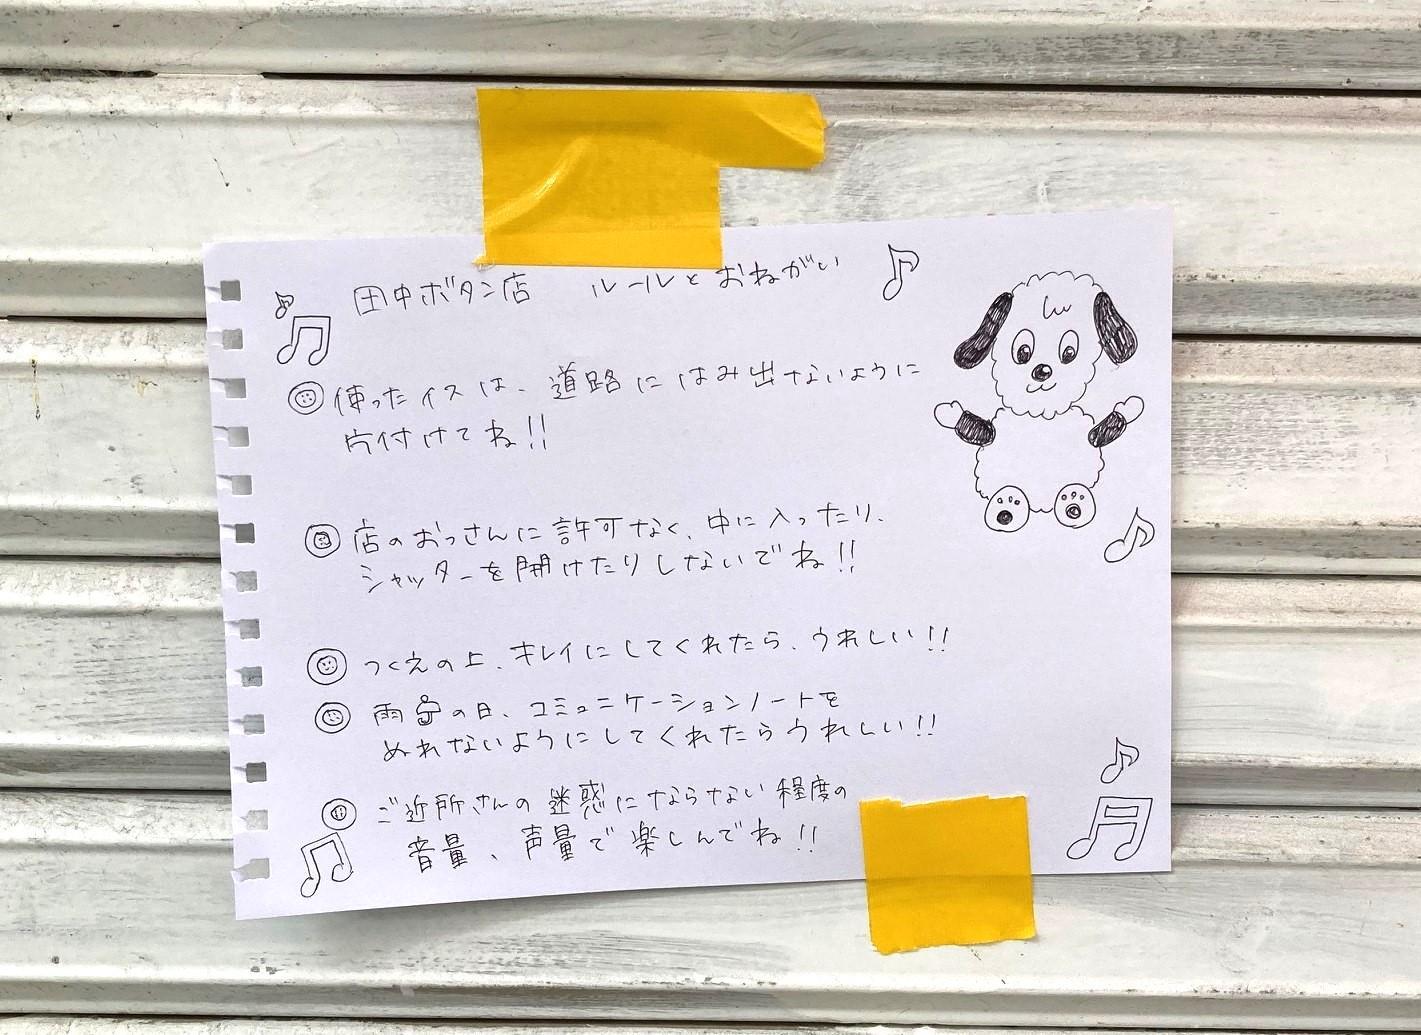 田中ボタン店 ルールとおねがい
使ったイスは、道路にはみ出さないように
片付けてね!!
店のおっさんに許可なく、中に入ったり、
シャッターを開けたりしないでね!!
つくえの上、キレイにしてくれたら、うれしい!!
雨の日、コミュニケーションノートを
ぬれないようにしてくれたらうれしい!!
ご近所さんの迷惑にならない程度の
音量、声量で楽しんでね!!